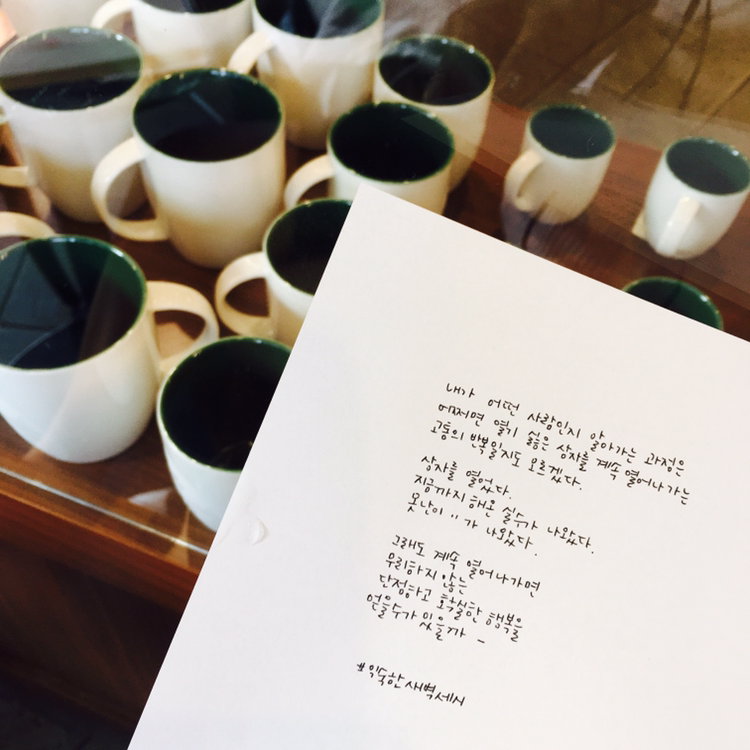 내가 어떤 사람인지 알아가는 과정은
어쩌면 열기 싫은 상자를 계속 열어나가는
고통의 반복일지도 모르겠다.
상자를 열었다.
지금까지 해온 실수가 나왔다.
못난이 〃 가 나왔다.
그래도 계속 열어나가면
무리하지 않는
단정하고 확실한 행복을
얻을수가 있을까 _
#익숙한새벽세시